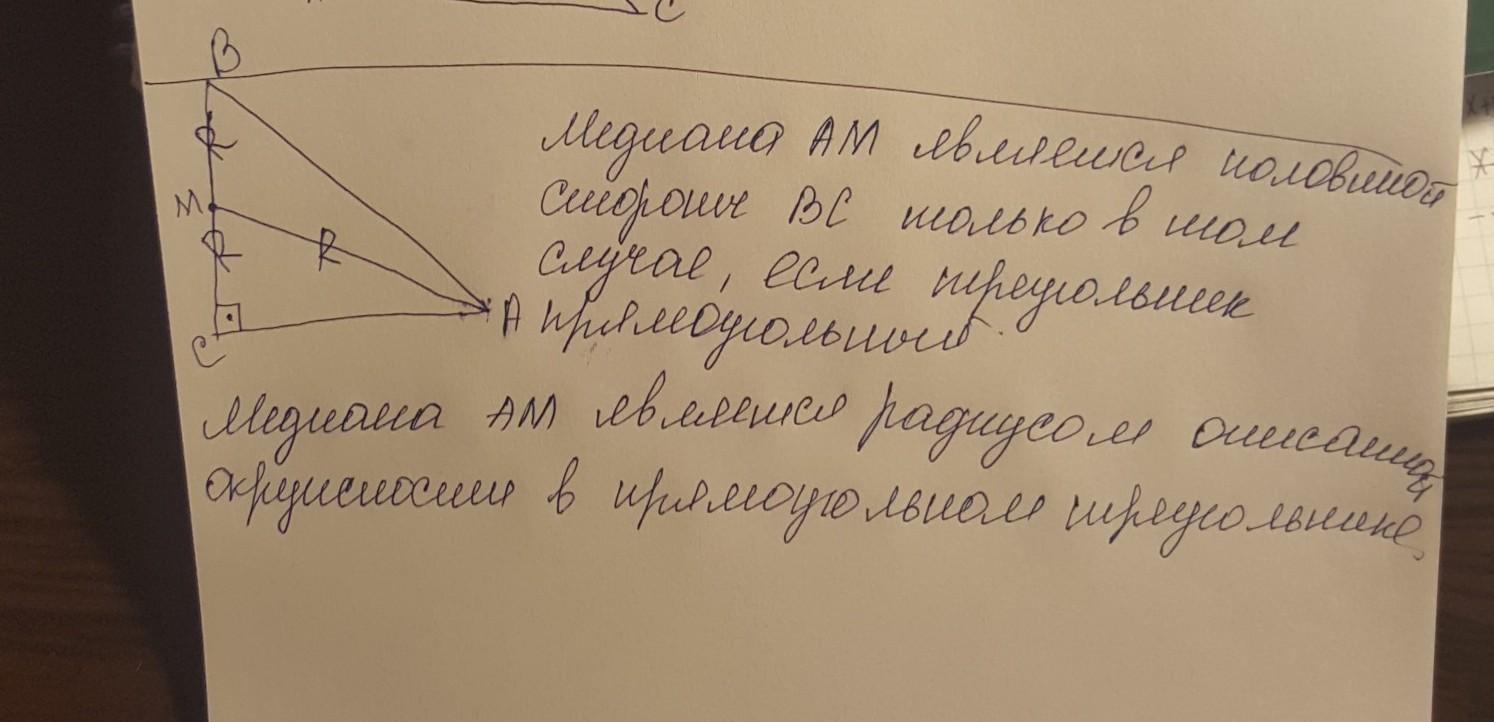 C
B
R
M
R
R
C
A
Медиана AM является половиной
стороны BC только в том
случае, если треугольник
прямоугольный.
Медиана AM является радиусом описанной
окружности в прямоугольном треугольнике